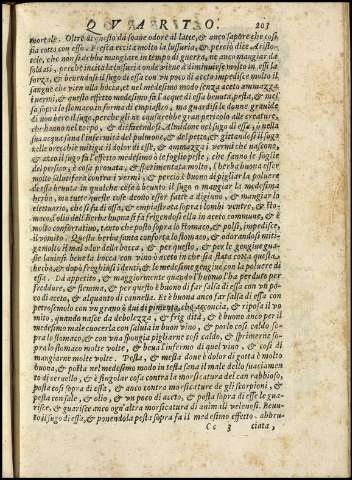 QVARTO. 203
mortale. Oltre di questo da soaue odore al latte, & anco sapore che cosi
sia rotto con esso. Pesta eccita molto la lussuria, & perciò dice Aristo-
tele, che non si debba mangiare in tempo di guerra, ne anco mangiar da
soldati, perche incita la lussuria onde viene a diminuirse molto in essi la
forza, & beuendosi il sugo di essa con vn poco di aceto impedisce molto il
sangue che vien alla bocca, et nel medesimo modo senza aceto ammazza
i vermi, & questo effetto medesimo fa l'acque di essa beuuta, pesta, & mes
sa sopra lo stomaco in forma di empiastro, ma guardisi le donne grauide
di non bere il sugo, perche gli ne causarebbe gran pericolo alle creature,
che hanno nel corpo, & disfarendosi. Amidone nel sugo di essa, o nella
sua acqua sana l'infermità del polmone, & del petto, & gittando il sugo
nelle orecchie mitiga il dolor di esse, & ammazza i vermi che nascono,
& anco il sugo fa l'effetto medesimo & le foglie peste, che fanno le foglie
del persico, è cosa prouata, & sperimentata molto. l'herba buona esser
molto salutifera contra i vermi, & perciò è buono di pigliar la poluere
di essa beuuta in qualche cosa ò beuuto il sugo o mangiar la medesima
herba, ma tutte queste cose deono esser fatte a digiuno, & mangiar lo
elettuario, che si fa di essa, & empiastrata sopra i lombi ventre, & sto
maco, l'olio dell'herba buona si fa frigendosi ella in aceto commune, & è
molto confortatiuo, tanto che posto sopra lo stomaco, & polsi, impedisce,
il vomito. Questa herba santa conforta lo stomaco, & odorandosi miti-
ga molto il mal odor della bocca, & per questo, & per le gengiue gua-
ste laninsi bene la bocca con vino ò aceto in che sia stata cotta questa
herba, & dopò freghinsi i denti, & le medesime gengiue con la poluere di
essa. Dà appetito, & maggiormente quando l'huomo l'ha perduto per
freddure, & flemma, & per questo è buono di far salsa di essa con vn po-
co di aceto, & alquanto di cannella. Et è buona anco far salsa di essa con
petrosemolo con vn gramo è lui di pimenta, che accoucia, & riposa il vo
mito, quando nasce da debolezza, & frigidità, & è buona anco per il
medesimo male cuocerla con saluia in buon vino, & porlo così caldo so-
pra lo stomaco, & con vna spongia pigliarne così caldo, & sprimerne so-
pra lo stomaco molte volte, & beua l'infermo di quel vino, & così di
mangiarne molte volte. Pesta, & messa doue è dolor di gotta è molto
buona, & posta nel medesimo modo in testa sana il male dello suaciamen
to di ceruello, & è singolar cosa contra la morsicatura del can rabbioso,
posta così sopra di esse, & anco contra morsicature de gli scorpioni, &
pesta con sale, & olio, & vn poco di aceto, & posta sopra di esse le gua-
risce, & guarisce anco ogni altra morsicatura di animali velenosi. Beuu-
to il sugo di essa, & ponendola pesta sopra fa il medesimo effetto. abbru-
Cc 3 ciata,